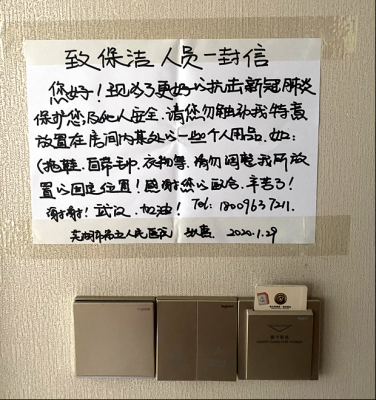 致保洁人员一封信
您好！现为了更好的抗击新冠肺炎
保护您及他人安全，请您勿触补我特意
放置在房间内某处的一些个人用品，如：
（拖鞋、自带毛巾、衣物等，请勿调整我所放
置的固定位置！感谢您的配合，辛苦了！
谢谢！武汉，加油！ Tel：18009637211.
芜湖市第五人民医院 2020.1.29